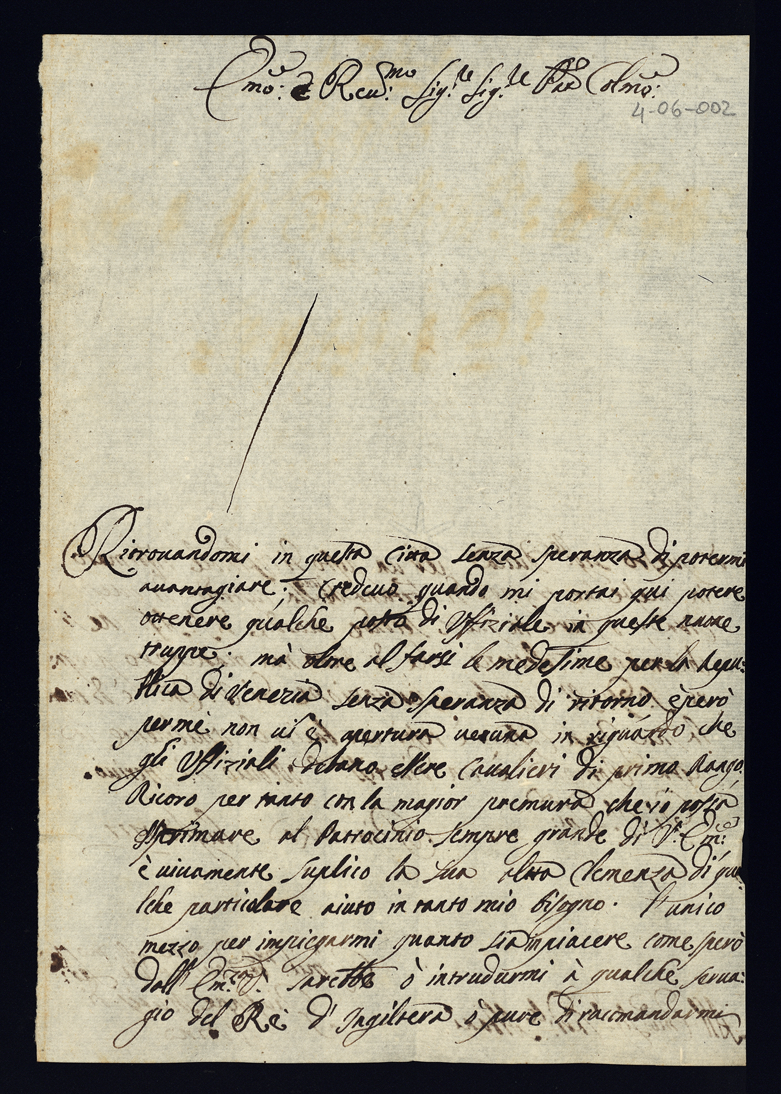 Em:o e Reu:mo Sig:re Sig:re Pne Colmo:
4-06-002
Ritrouandomi in questa Citta senza speranza di potermi
auantagiare; Credeuo quando mi portai qui potere
ottenere qualche posto di Vffiziale in queste nuoue
truppe. mà oltre al farsi le medesime per la Repu:
blica di Venezia senza speranza di ritorno, e però
per me non ui è apertura ueruna in riguardo che
gli Vffiziali debano essere Caualieri di primo Rango.
Ricoro per tanto con la magior premura che io possa
esprimare al Patrocinio sempre grande di V. Em:
è uiuamente suplico la sua alta Clemenza di qua
lche particolare aiuto in tanto mio bisogno. l'unico
mezzo per impiegarmi quanto sia in piacere come sperò
dall' Em: V. sarebbe ò intrudurmi à qualche serua:
gio del Rè d'Ingiltera o pure di racmandarmi